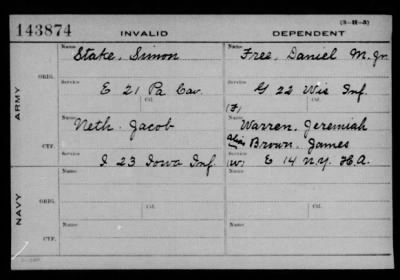 (3-H-3)
143874 INVALID DEPENDENT
Name Name
Stake, Simon Free, Daniel M. Jr.
ARMY
ORIG.
Service Service
E 21 Pa Cav. G 22 Wis Inf.
Ctf. Ctf.
(F)
Name Name
Neth. Jacob Warren, Jeremiah
CTF.
Alias Brown, James
Service Service
I 23 Iowa Inf. (W) E 14 N.Y. H.A.
NAVY
ORIG.
Name Name
Ctf. Ctf.
CTF.
Name Name